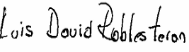 Luis David Robles teron